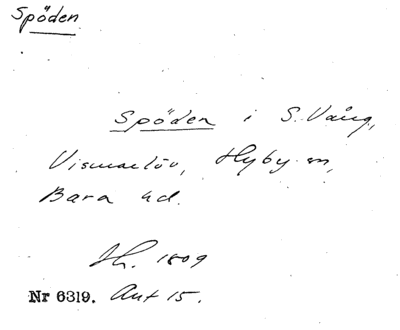 Spöden
Spöden i S. Vång,
Vismarlöv, Hyby sn,
Bara hd.
Sk. 1809
Nr 6319. Akt 15.